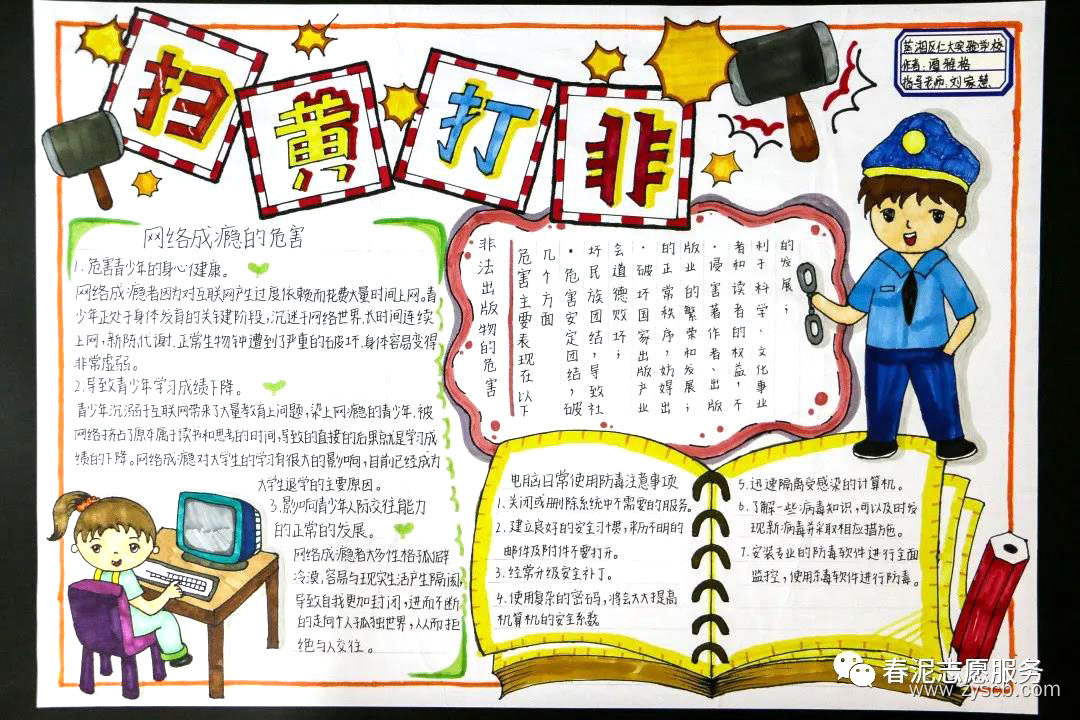 扫黄打非
芸湘区仁大实验学校
作者:谭雅格
指导老师:刘宗慧
网络成瘾的危害
1.危害青少年的身心健康。
网络成瘾者因为对互联网产生过度依赖而花费大量时间上网。青
少年正处于身体发育的关键阶段,沉迷于网络世界.长时间连续
上网,新陈代谢.正常生物钟遭到了严重的破坏.身体容易变得
非常虚弱。
2.导致青少年学习成绩下降。
青少年沉溺于互联网带来了大量教育上问题,染上网瘾的青少年.被
网络挤占了原本属于读书和思考的时间,导致的直接的后果就是学习成
绩的下降。网络成瘾对大学生的学习有很大的影响,目前已经成为
大学生退学的主要原因。
3.影响青少年人际交往能力
的正常的发展。
网络成瘾者大多性格孤僻
冷漠,容易与现实生活产生隔阂,
导致自我更加封闭,进而不断
的走向个人孤独世界,从而拒
绝与人交往。
非法出版物的危害
危害主要表现在以下
几个方面
·危害安定团结,破
坏民族团结,导致社
会道德败坏;
·破坏国家出版产业
的正常秩序,妨碍出
版业的繁荣和发展;
·侵害著作者、出版
者和读者的权益,不
利于科学、文化事业
的发展;
电脑日常使用防毒注意事项
1.关闭或删除系统中不需要的服务。
2.建立良好的安全习惯,来历不明的
邮件及附件不要打开。
3.经常升级安全补丁。
4.使用复杂的密码,将会大大提高
机算机的安全系数
5.迅速隔离受感染的计算机。
6.了解一些病毒知识,可以及时发
现新病毒并采取相应措施。
7.安装专业的防毒软件进行全面
监控,使用杀毒软件进行防毒。
春泥志愿服务
www.zyscb.com